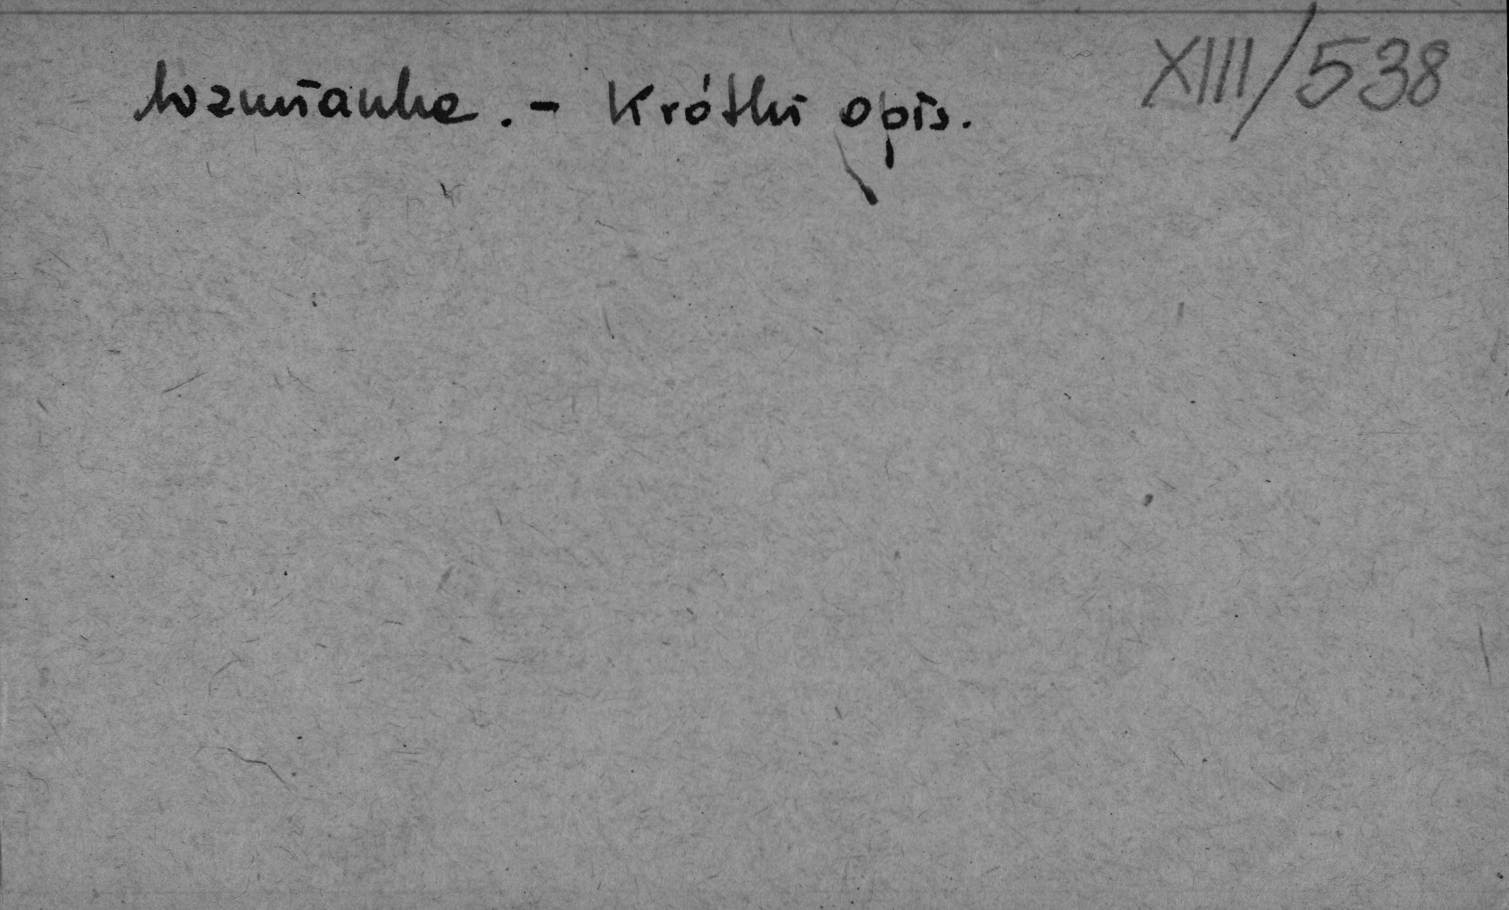 Wzmianka. - Krótki opis.
XIII/538